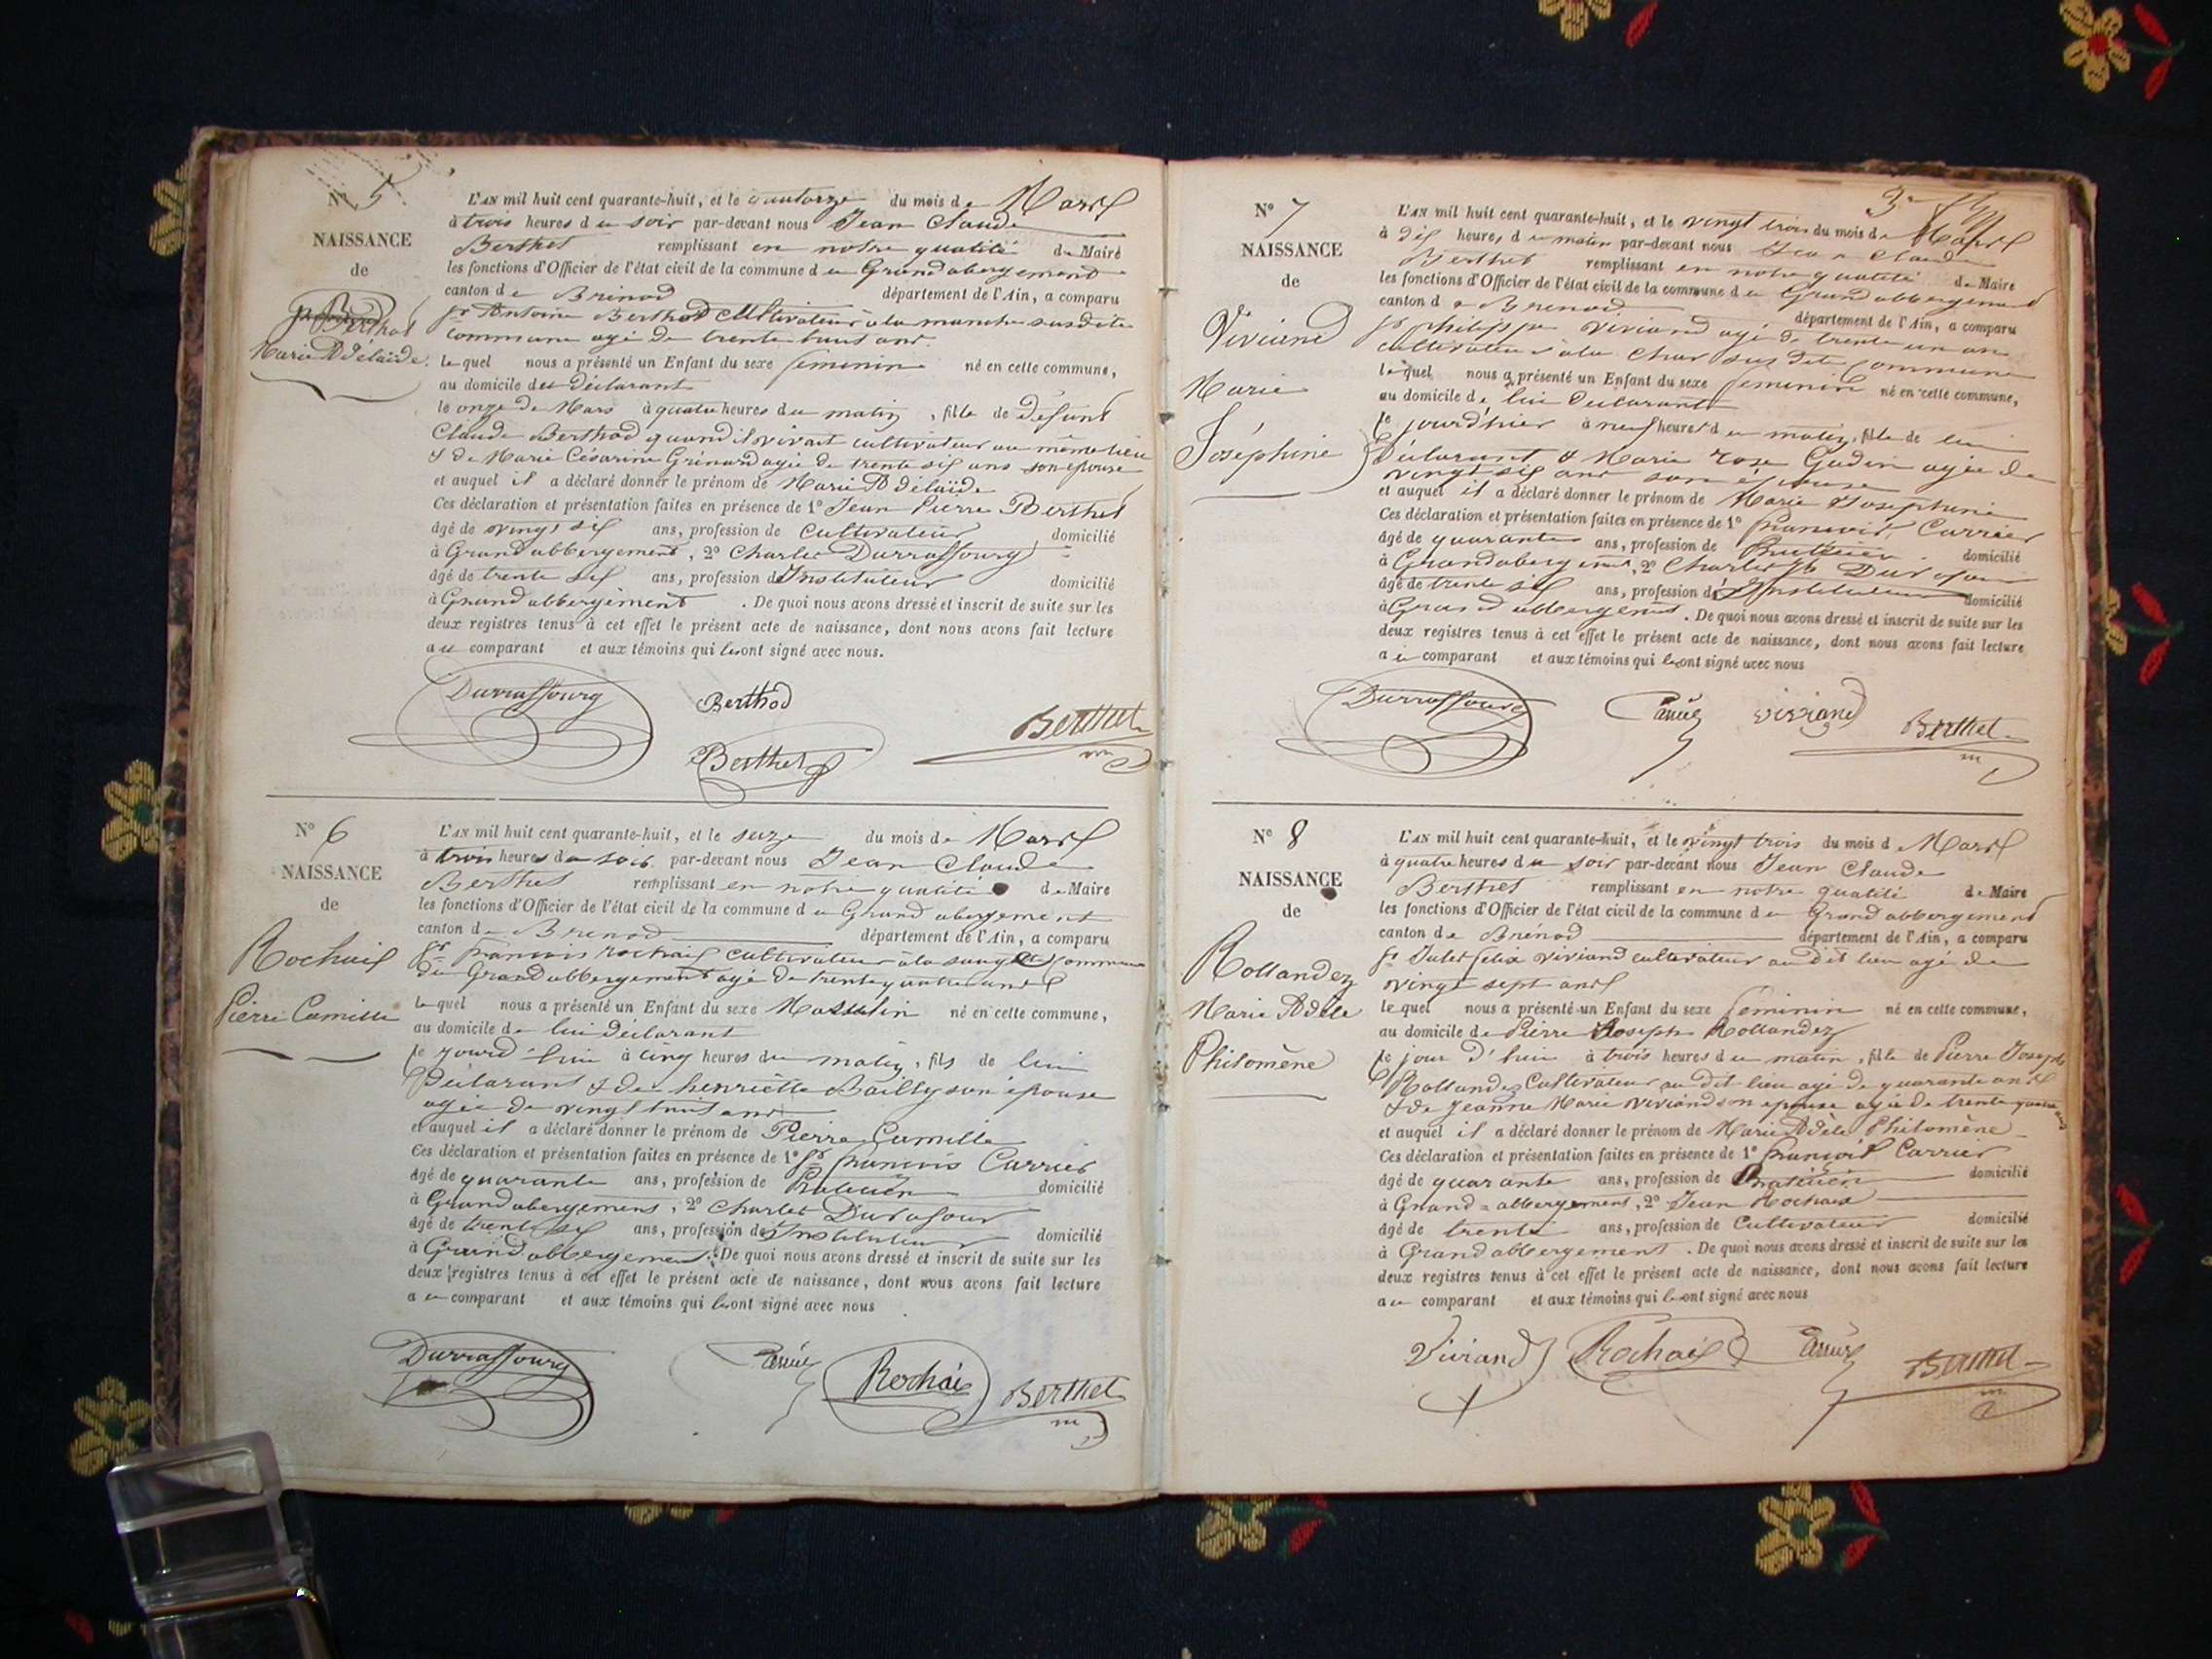 N° 5
NAISSANCE
de
Berthod
Marie Adélaïde.
L'AN mil huit cent quarante-huit, et le quatorze du mois de Mars
à trois heures du soir par-devant nous Jean Claude
Berthet remplissant en notre qualité de Maire
les fonctions d'Officier de l'état civil de la commune du Grand abergement
canton de Brénod département de l'Ain, a comparu
sr Antoine Berthod Cultivateur à la manche susdite
commune agé de trente huit ans.
lequel nous a présenté un Enfant du sexe feminin né en cette commune,
au domicile du déclarant
le onze de Mars à quatre heures du matin, fille de défunt
Claude Berthod quand il vivait cultivateur au même lieu
& de Marie Césarine Grinard agée de trente six ans son épouse
et auquel il a déclaré donner le prénom de Marie Adélaïde
Ces déclaration et présentation faites en présence de 1° Jean Pierre Berthet
âgé de vingt six ans, profession de Cultivateur domicilié
à Grand abbergement, 2° Charles Durraffourg
âgé de trente six ans, profession d'Instituteur domicilié
à Grand abbergement. De quoi nous avons dressé et inscrit de suite sur les
deux registres tenus à cet effet le présent acte de naissance, dont nous avons fait lecture
au comparant et aux témoins qui l'ont signé avec nous.
Durraffourg Berthod
Berthet Berthet
m
N° 6
NAISSANCE
de
Rochaix
Pierre Camille
L'AN mil huit cent quarante-huit, et le seize du mois de Mars
à trois heures du soir par-devant nous Jean Claude
Berthet remplissant en notre qualité de Maire
les fonctions d'Officier de l'état civil de la commune du Grand abergement
canton de Brenod département de l'Ain, a comparu
sr francois rochaix cultivateur à la commune
du Grand abbergement agé de trente quatre ans
lequel nous a présenté un Enfant du sexe Masculin né en cette commune,
au domicile de lui déclarant
le jourd'hui à cinq heures du matin, fils de lui
Déclarant & de henriette Bailly son épouse
agée de vingt huit ans
et auquel il a déclaré donner le prénom de Pierre Camille
Ces déclaration et présentation faites en présence de 1° sr francois Carrier
âgé de quarante ans, profession de Praticien domicilié
à Grand abergement, 2° Charles Durafour
âgé de trente six ans, profession d'Instituteur domicilié
à Grand abbergement. De quoi nous avons dressé et inscrit de suite sur les
deux registres tenus à cet effet le présent acte de naissance, dont nous avons fait lecture
au comparant et aux témoins qui l'ont signé avec nous
Durraffourg Rochaix Berthet
m
3
N° 7
NAISSANCE
de
Viviand
Marie
Joséphine
L'AN mil huit cent quarante-huit, et le vingt trois du mois de Mars
à dix heures du matin par-devant nous Jean Claude
Berthet remplissant en notre qualité de Maire
les fonctions d'Officier de l'état civil de la commune du Grand abbergement
canton de Brenod département de l'Ain, a comparu
sr philippe Viviand agé de trente un ans
cultivateur à la Char sus dite commune
lequel nous a présenté un Enfant du sexe feminin né en cette commune,
au domicile de lui Déclarant
le jourd'hier à neuf heures du matin, fille de lui
Déclarant & Marie rose Gudin agée de
vingt six ans son épouse
et auquel il a déclaré donner le prénom de Marie Josephine
Ces déclaration et présentation faites en présence de 1° francois Carrier
âgé de quarante ans, profession de Praticien domicilié
à Grand abergement, 2° Charles Durafour
âgé de trente six ans, profession d'Instituteur domicilié
à Grand abbergement. De quoi nous avons dressé et inscrit de suite sur les
deux registres tenus à cet effet le présent acte de naissance, dont nous avons fait lecture
au comparant et aux témoins qui l'ont signé avec nous
Durraffourg viviand Berthet
m
N° 8
NAISSANCE
de
Rollandez
Marie Adèle
Philomène
L'AN mil huit cent quarante-huit, et le vingt trois du mois d Mars
à quatre heures du soir par-devant nous Jean Claude
Berthet remplissant en notre qualité de Maire
les fonctions d'Officier de l'état civil de la commune du Grand abbergement
canton de Brénod département de l'Ain, a comparu
sr Jules felix viviand cultivateur au dit lieu agé de
vingt sept ans
lequel nous a présenté un Enfant du sexe feminin né en cette commune,
au domicile de Pierre Joseph Rollandez
le jour d'hui à trois heures du matin, fille de Pierre Joseph
Rollandez Cultivateur au dit lieu agé de quarante ans
& de Jeanne Marie viviand son epouse agée de trente quatre ans
et auquel il a déclaré donner le prénom de Marie Adèle Philomène
Ces déclaration et présentation faites en présence de 1° françois Carrier
âgé de quarante ans, profession de Praticien domicilié
à Grand = abbergement, 2° Jean Rochaix
âgé de trente ans, profession de Cultivateur domicilié
à Grand abbergement. De quoi nous avons dressé et inscrit de suite sur les
deux registres tenus à cet effet le présent acte de naissance, dont nous avons fait lecture
au comparant et aux témoins qui l'ont signé avec nous
Viviand Rochaix Berthet
m